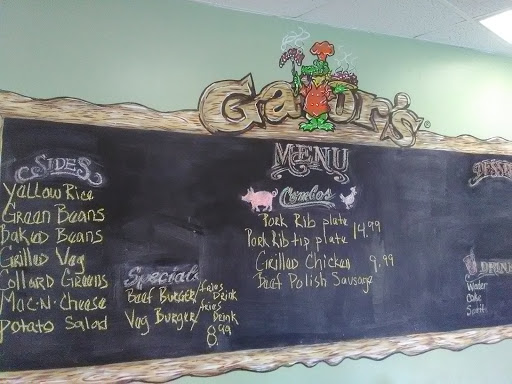 Gator's
SIDES
Yallow Rice
Green Beans
Baked Beans
Grilled Veg
Collard Greens
Mac·N·Cheese
Potato Salad
Special
Beef Burger/fries Drink
Veg Burger/fries Drink
8.99
MENU
Combos
Pork Rib plate
Pork Rib tip plate 14.99
Grilled Chicken 9.99
Beef Polish Sausage
DRINK
Water
Coke